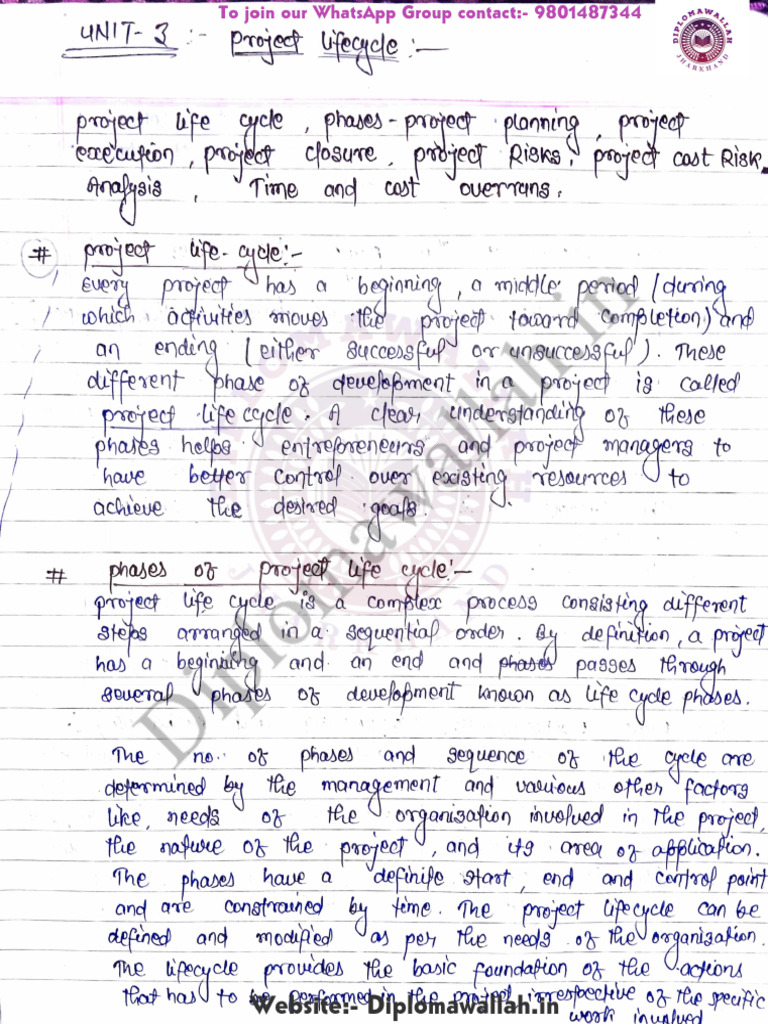 To join our WhatsApp Group contact:- 9801487344
DIPLOMAWALLAH
JHARKHAND
UNIT-3 :- Project Lifecycle :-
project life cycle, phases - project planning, project
execution, project closure, project Risks, project cost Risk
Analysis, Time and cost overruns.
# project life-cycle:-
Every project has a beginning, a middle period (during
which activities moves the project toward completion) and
an ending (either successful or unsuccessful). These
different phase of development in a project is called
project life cycle. A clear understanding of these
phases helps entrepreneurs and project managers to
have better control over existing resources to
achieve the desired goals.
# phases of project life cycle:-
project life cycle is a complex process consisting different
steps arranged in a sequential order. By definition, a project
has a beginning and an end and phases passes through
several phases of development known as life cycle phases.
The no. of phases and sequence of the cycle are
determined by the management and various other factors
like, needs of the organisation involved in the project,
the nature of the project, and its area of application.
The phases have a definite start, end and control point
and are constrained by time. The project lifecycle can be
defined and modified as per the needs of the organisation.
The lifecycle provides the basic foundation of the actions
that has to be performed in the project irrespective of the specific
work involved
Website:- Diplomawallah.in
Diplomawallah.in